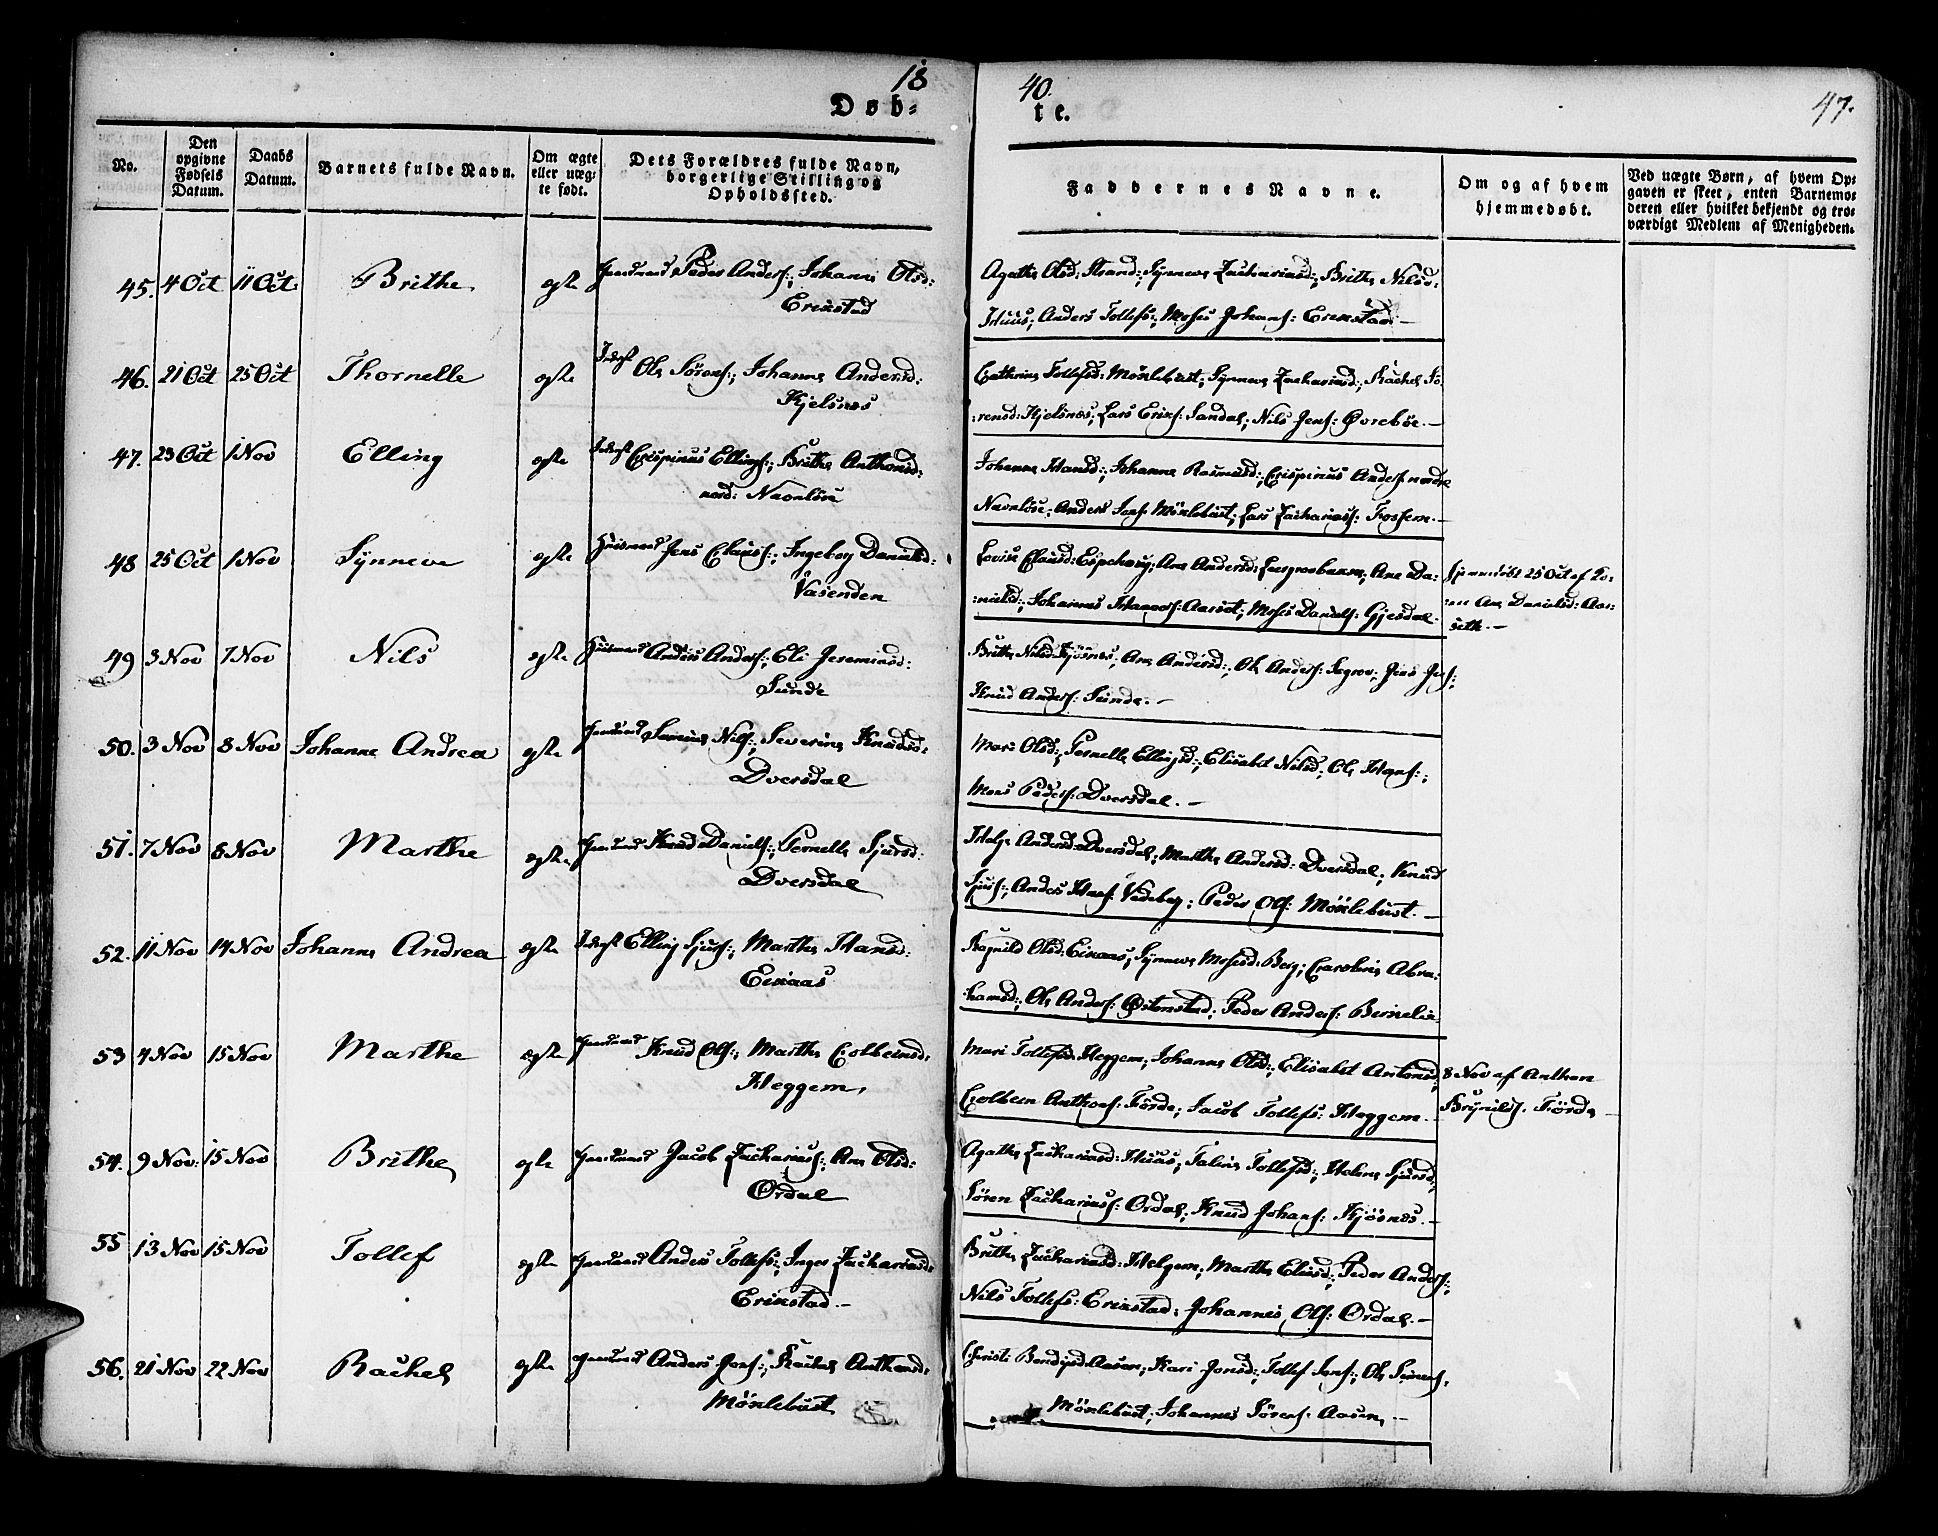 18
40.
47.
Døb-
te.
No.
Den opgivne Fødsels Datum.
Daabs Datum.
Barnets fulde Navn.
Om ægte eller uæg-te født.
Dets Forældres fulde Navn, borgerlige Stilling og Opholdssted.
Faddernes Navne.
Om og af hvem hjemmedøbt.
Ved uægte Børn, af hvem Op-gaven er skeet, enten Barnemo-deren eller hvilket bekjendt og tro-værdigt Medlem af Menigheden.
45. 4 Oct 11 Oct Brithe egte Gaardmand Peder Anders:, Johanne Olsd:
Erikstad
Agathe Olsd: Strand; Synneve Zachariasd:; Brithe Nilsd:
Huus; Anders Tollefs:, Moses Johans: Erikstad.—
46. 21 Oct 25 Oct Thornelle egte Inderst Ole Sørens:, Johanne Andersd:
Kjelsnes
Cathrine Tollefsd: Møklebust; Synneve Zachariasd:, Rachel Sø-
:rensd: Kjelsnes; Lars Eriks: Sandal; Nils Jens: Øvrebøe.—
47. 23 Oct 1 Nov Elling egte Inderst Crispinus Ellings:, Brithe Anthonsd:
nord: Navnløse
Johanne Hansd:; Johanne Rasmusd:; Crispinus Anders: nordre
Navnløse; Anders Jens: Møklebust; Lars Zacharias: Fossem.—
48 25 Oct 1 Nov Synneve egte Huusmand Jens Claus:, Ingeborg Danielsd:
Vasenden
Lovise Clausd: Espehoug; Ane Andersd: ; Ane Da-
:nielsd:; Johannes Aaset; Moses Daniels: Gjesdal.
hjemmedøbt 25 Oct af Ko-
nen Ane Danielsd: Aa-
seth.—
49 3 Nov 7 Nov Nils egte Huusmand Anders Anders:, Eli Jeremiasd:
Sunde
Brithe Nilsd: Kjøsnes; Ane Andersd:, Ole Anders: Segrov; Jens Jens:,
Knud Anders: Sunde.—
50. 3 Nov 8 Nov Johanne Andrea egte Gaardmand Nils:, Severine Knudsd:
Dversdal
Mari Olsd:, Pernelle Ellingsd:, Elisabet Nilsd:, Ole Hans:;
Mons Peders: Dversdal.—
51. 7 Nov 8 Nov Marthe egte. Gaardmand Knud Daniels:, Pernelle Sjursd:
Dversdal
Helge Andersd: Dversdal; Marthe Andersd: Dversdal; Knud
Sjurs:; Anders Hans: Vedeberg; Peder Ols: Møklebust.—
52. 11 Nov 14 Nov Johanne Andrea egte Inderst Elling Sjurs:, Marthe Hansd:
Eikaas
Ragnild Olsd: Eikaas; Synneve Mosesd: Berg; Caroline Abra-
:hamsd:, Ole Anders: Østenstad; Peder Anders:
53 4 Nov 15 Nov Marthe egte Gaardmand Knud Ols:, Marthe Colbeinsd:
Heggem,
Mari Tollefsd: Heggem; Johanne Olsd:, Elisabet Antonsd:
Colbein Anthons: Førde; Jacob Tollefs: Heggem.—
8 Nov af Anthon
Brynilds: Førde
54. 9 Nov: 15 Nov Brithe egte Gaardmand Jacob Zacharias:, Ane Olsd:
Ørdal
Agathe Zachariasd: Huus; Taline Tollefsd:, Helene Sjursd:,
Søren Zacharias: Ørdal; Knud Johans: Kjøsnes.—
55 13 Nov 15 Nov Tollef egte Gaardmand Anders Tollefs:, Inger Zachariasd:
Erikstad.—
Brithe Zachariasd: Helgem; Marthe Eliasd:, Peder Anders:;
Nils Tollefs: Erikstad; Johannes Ols: Ørdal.—
56. 21 Nov 22 Nov Rachel egte Gaardmand Anders Jens:, Rachel Anthonsd:
Møklebust
Christi Bendixd: Aasen; Kari Jonsd:, Tollef Jens:, Ole
Møklebust; Johannes Sørens: Aasen.—